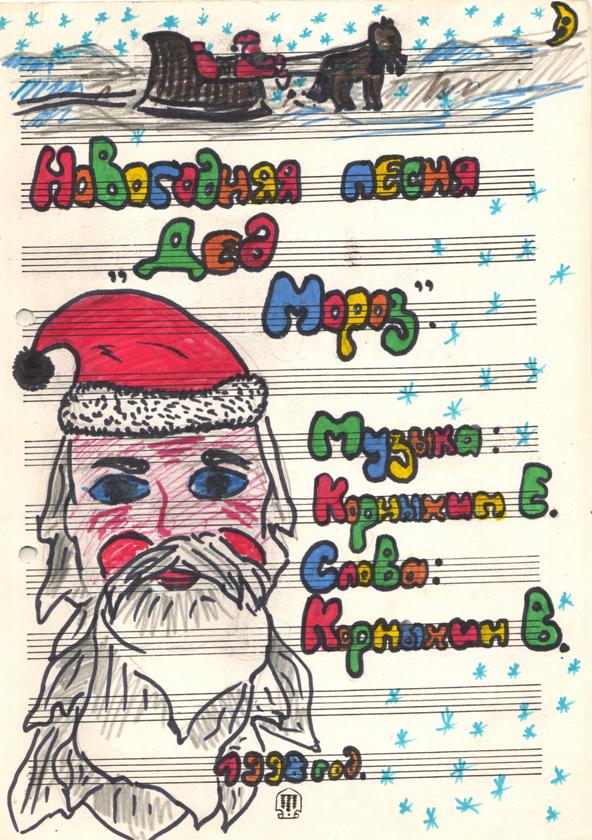 Новогодняя песня
„Дед
Мороз".
Музыка:
Корныхин Е.
Слова:
Корныхин В.
1998 год.